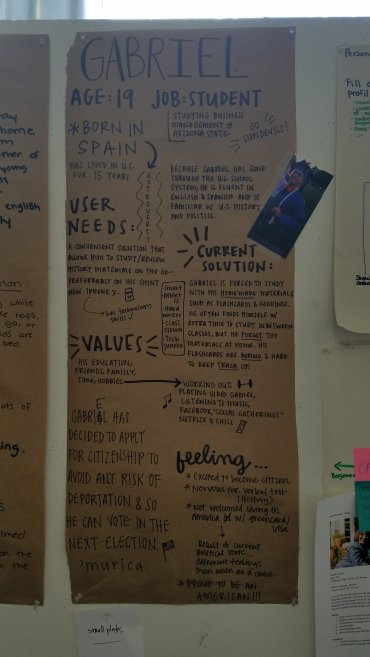 GABRIEL
AGE: 19 JOB: STUDENT
STUDYING BUSINESS
MANAGEMENT @
ARIZONA STATE
GO
SUNDEVILS!
*BORN IN
SPAIN
HAS LIVED IN U.S.
FOR 15 YEARS
EXTROVERT
BECAUSE GABRIEL HAS GONE
THROUGH THE U.S. SCHOOL
SYSTEM, HE IS FLUENT IN
ENGLISH & SPANISH AND IS
FAMILIAR W/ U.S. HISTORY
AND POLITICS.
USER
NEEDS:
A CONVENIENT SOLUTION THAT
ALLOWS HIM TO STUDY/REVIEW
HISTORY MATERIALS ON THE GO--
PREFERRABLY ON HIS SHINY
NEW IPHONE X.
*has technology
skills
CURRENT
SOLUTION:
GABRIEL IS FORCED TO STUDY
WITH HIS HOMEMADE MATERIALS
SUCH AS FLASHCARDS & READINGS.
HE OFTEN FINDS HIMSELF W/
EXTRA TIME TO STUDY IN BETWEEN
CLASSES, BUT HE FORGOT THE
MATERIALS AT HOME. HIS
FLASHCARDS ARE BORING & HARD
TO KEEP TRACK OF.
Hard
worker
class clown
Tech
VALUES
HIS EDUCATION,
FRIENDS, FAMILY,
TIME, HOBBIES
WORKING OUT,
PLAYING VIDEO GAMES,
LISTENING TO MUSIC,
FACEBOOK, "SOCIAL GATHERINGS"
NETFLIX & CHILL
GABRIEL HAS
DECIDED TO APPLY
FOR CITIZENSHIP TO
AVOID ANY RISK OF
DEPORTATION & SO
HE CAN VOTE IN THE
NEXT ELECTION.
'murica
feeling...
*Excited to become citizen
*Nervous for verbal test
(History)
*Not welcomed living in
America w/ greencard/
visa
Result of current
Political state...
different feelings
than when as a child.
*PROUD TO BE AN
AMERICAN!!!
home
english
while
bed.
Person
Fill
profil
small